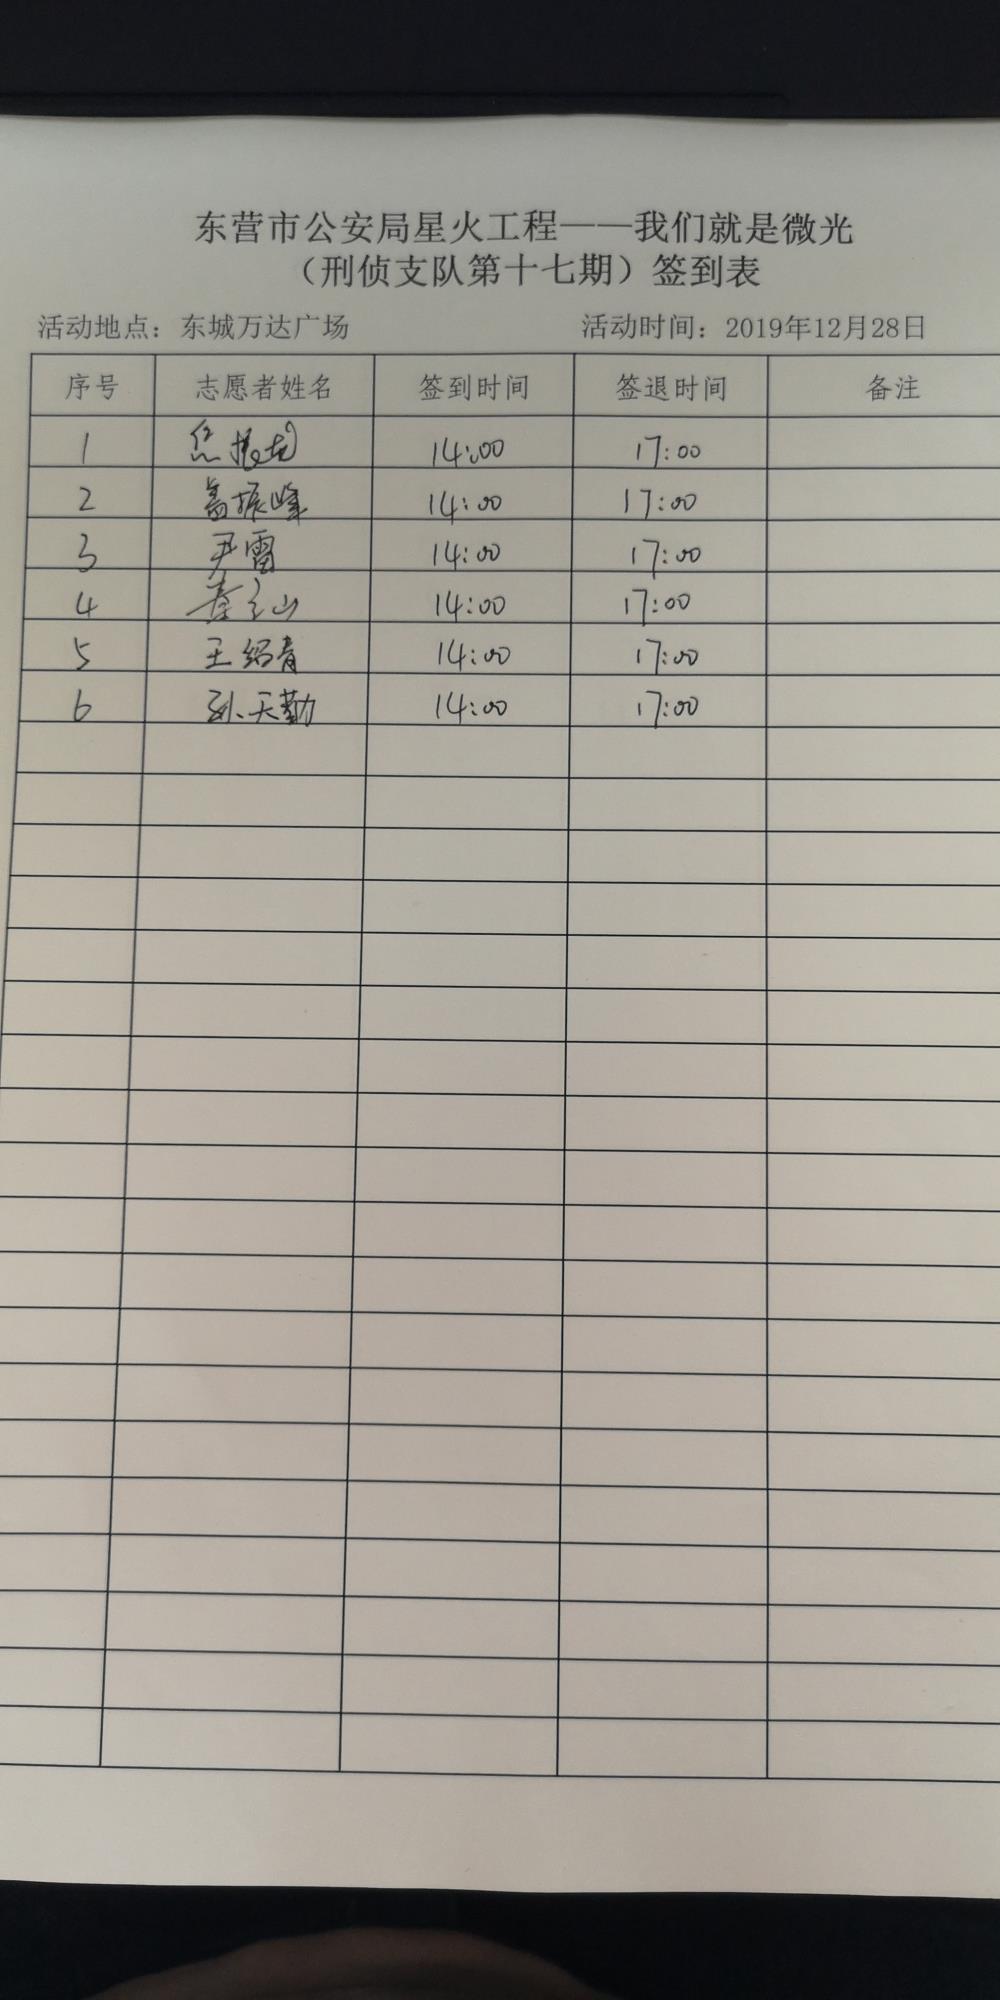 东营市公安局星火工程——我们就是微光
（刑侦支队第十七期）签到表
活动地点：东城万达广场 活动时间：2019年12月28日
序号 志愿者姓名 签到时间 签退时间 备注
1 振龙 14:00 17:00
2 盖振峰 14:00 17:00
3 尹雷 14:00 17:00
4 山 14:00 17:00
5 王绍青 14:00 17:00
6 孙天勤 14:00 17:00